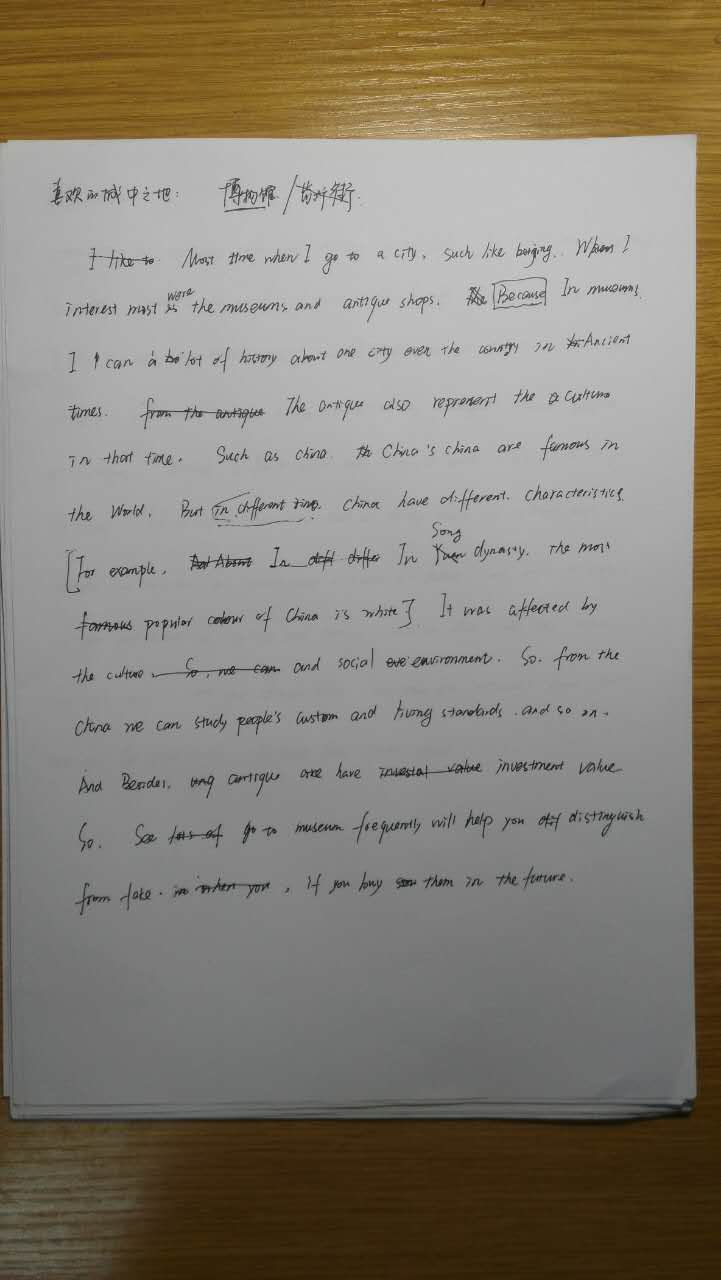 喜欢的城中之地: 博物馆/古玩街.
I like to Most time when I go to a city, such like beijing. Whem I
interest most is were the museums and antique shops. Because In museums.
I can a lot of history about one city even the country in Ancient
times. from the antique The antique also represent the a culture
in that time. Such as china. th China's china are famous in
the World. But in different time. China have different. characteristics.
[For example, And About In diff differ In Yuan Song dynasty. The most
famous popular colour of China is white]. It was affected by
the culture. So, we can and social eve environment. So. from the
China we can study people's custom and living standards. and so on.
And Besides, antique are have investal value investment value
So. See lots of go to museum frequently will help you dist distinguish
from fake. in when you, if you buy them in the future.